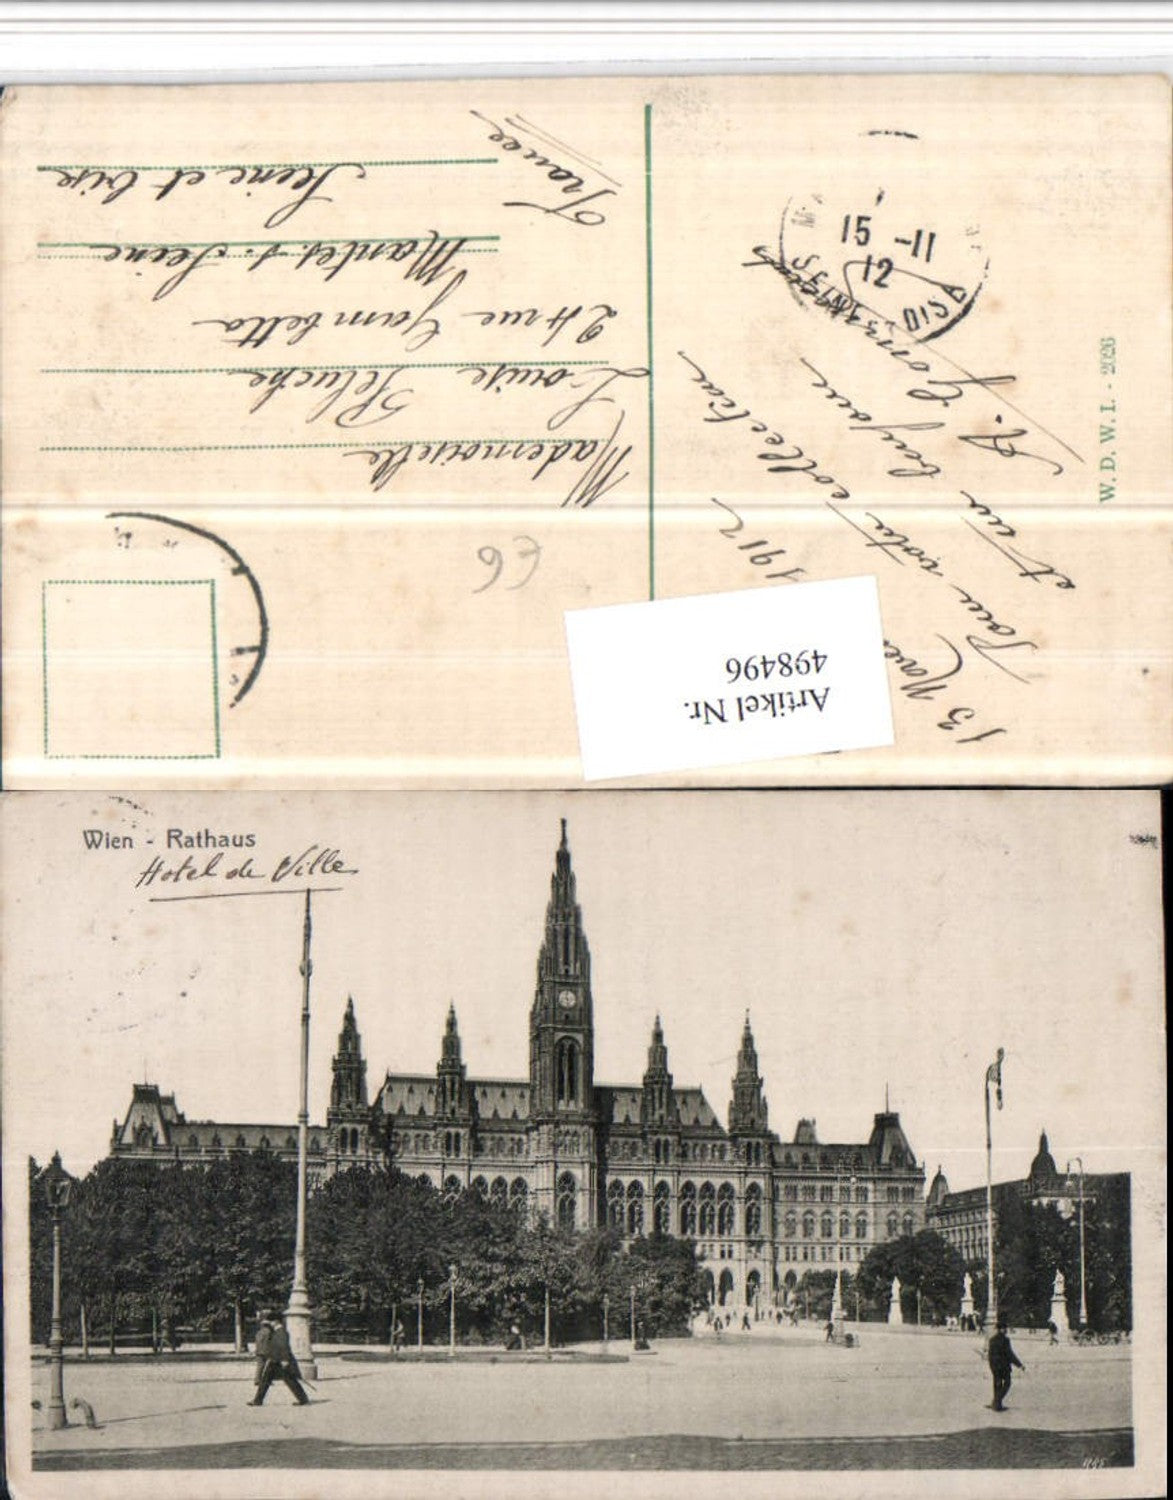 Mademoiselle
Louise Peluche
24 rue Gambetta
Mantes s. Seine
Seine et Oise
France
13
1912
Pour votre collection
et un bonjour
A.
15 -11
12
€6
W. D. W. I. - 2026
Artikel Nr.
498496
Wien - Rathaus
Hotel de Ville